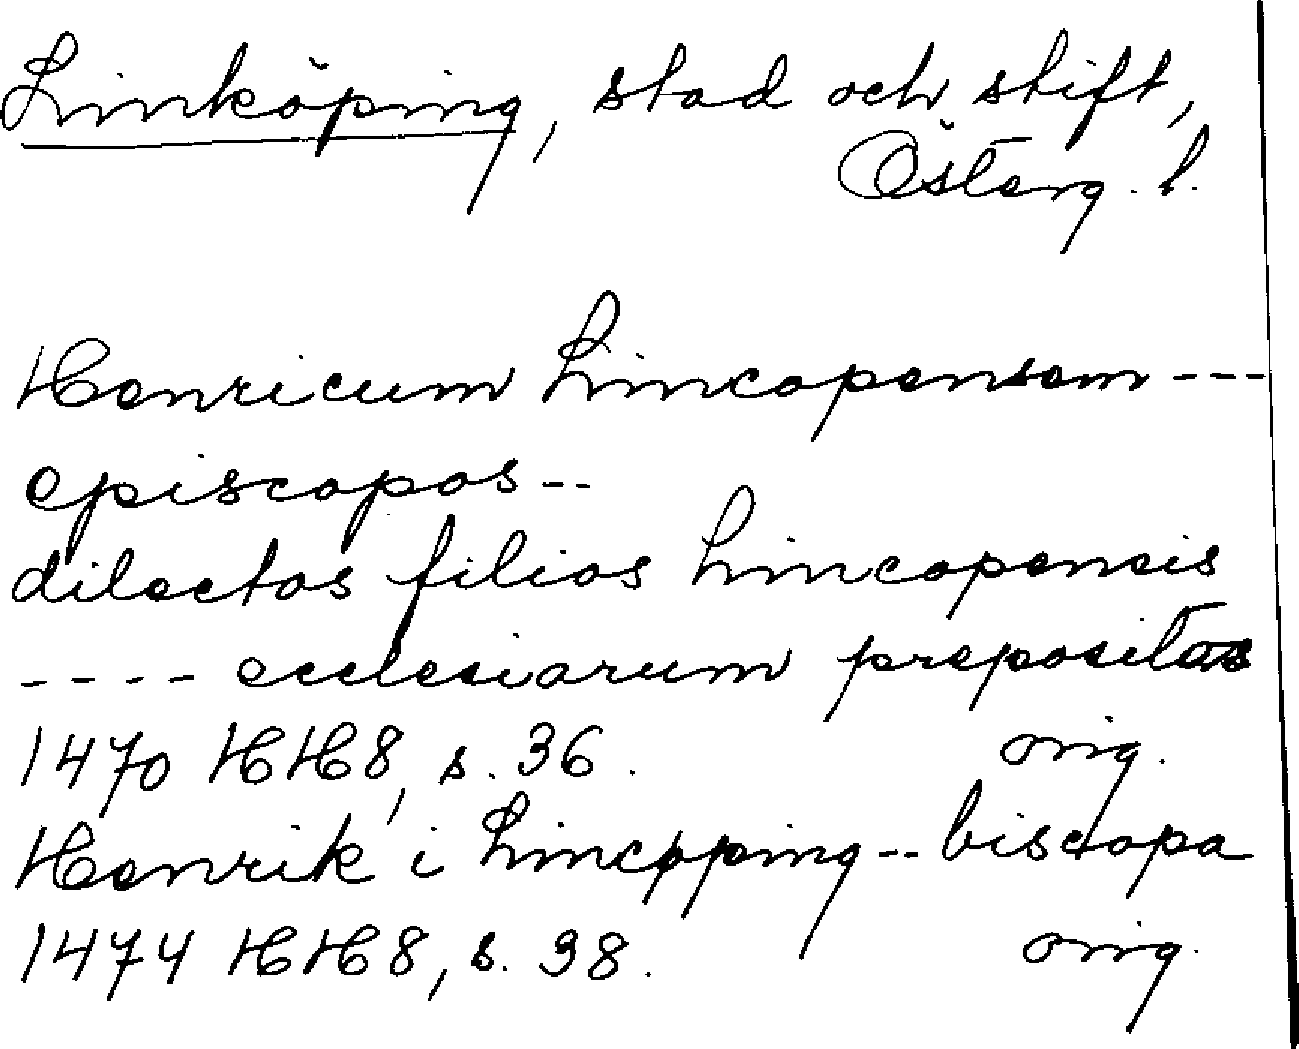 Linköping, stad och stift,
Österg. l.
Henricum Lincopensem ---
episcopos --
dilectos filios Lincopensis
---- ecclesiarum prepositas
1470 HH8, s. 36. orig.
Henrik i Lincøping -- biscopa
1474 HH8, s. 38. orig.